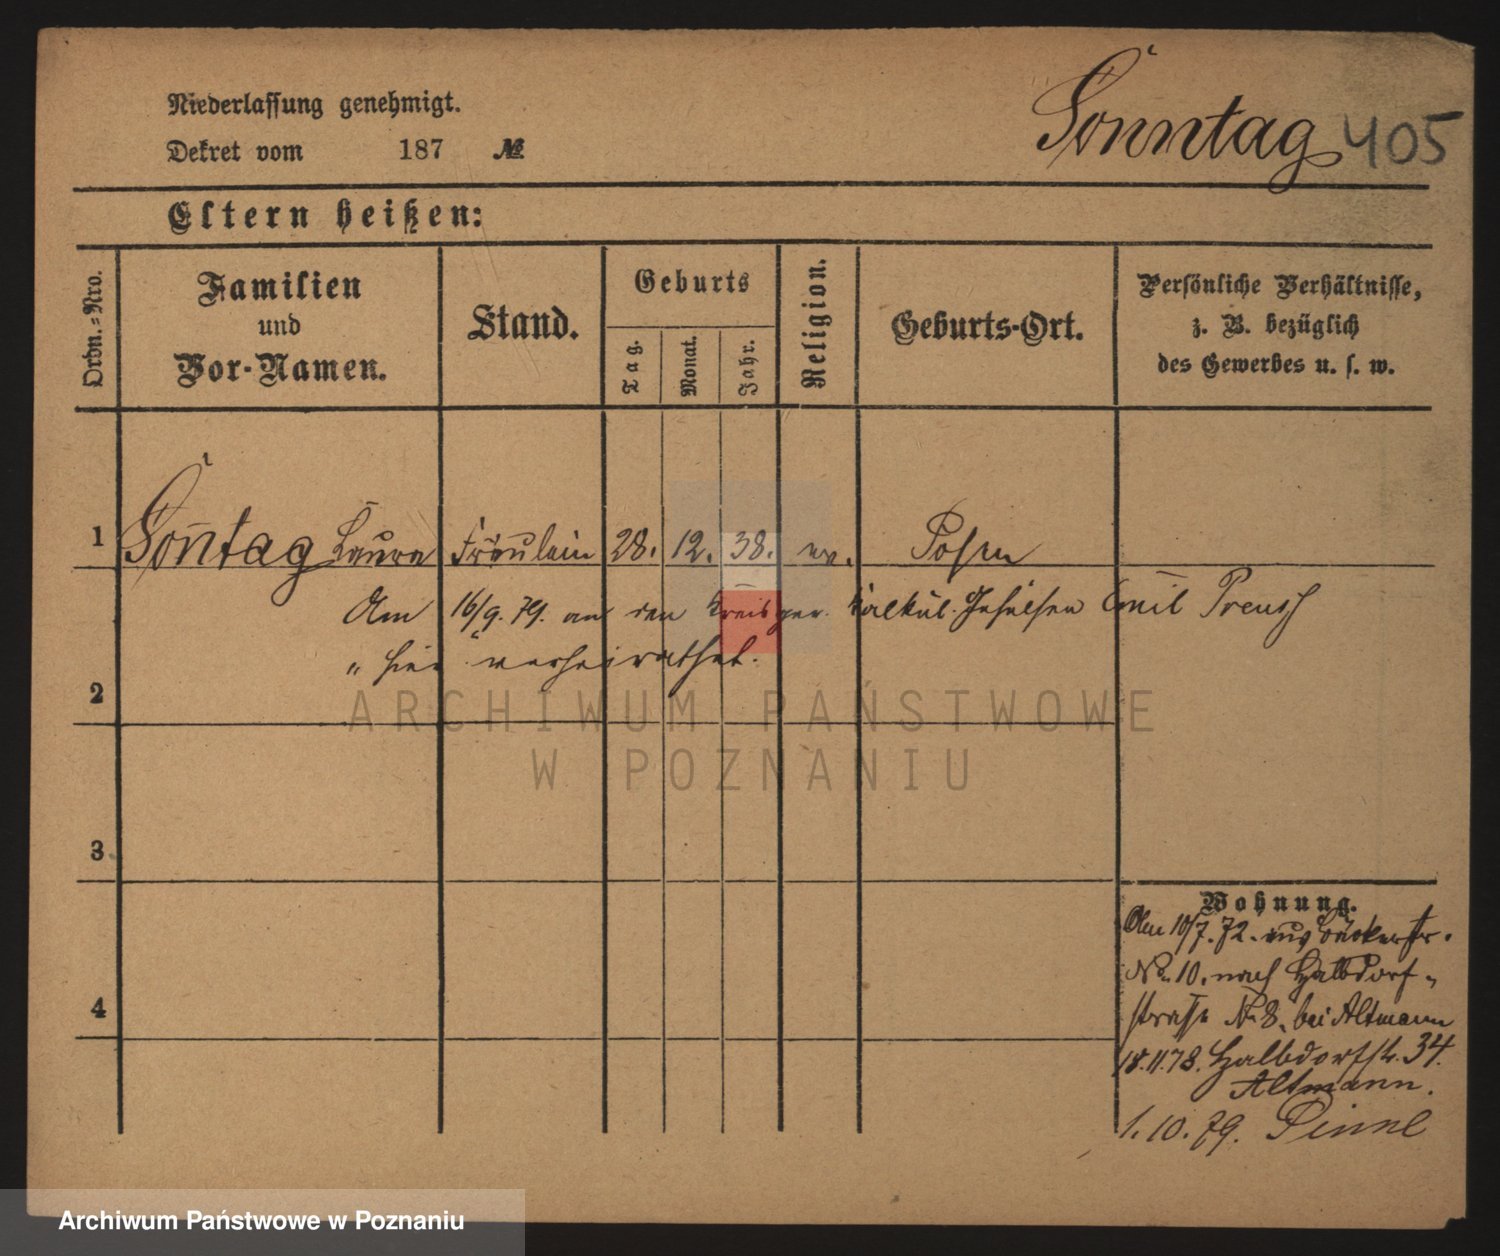 Niederlassung genehmigt.
Dekret vom 187 №
Sonntag 405
Eltern heißen:
Ordn.=Nro.
Familien
und
Vor-Namen.
Stand.
Geburts
Tag.
Monat.
Jahr.
Religion.
Geburts-Ort.
Persönliche Verhältnisse,
z. B. bezüglich
des Gewerbes u. s. w.
1 Son̄tag Laura Fräulein 28. 12. 38. ev. Posen
Am 16/9. 79. an den Kreisger. Kalkul. Gehülfen Emil Preuss
" hier verheirathet.
2
3
4
Wohnung.
Am 10/7. 72. aus Bäckerstr.
No 10. nach Halbdorf-
straße No 8. bei Altmann
18.11.78. Halbdorfstr. 34.
Altmann.
1. 10. 79. Pinne
ARCHIWUM PAŃSTWOWE
W POZNANIU
Archiwum Państwowe w Poznaniu